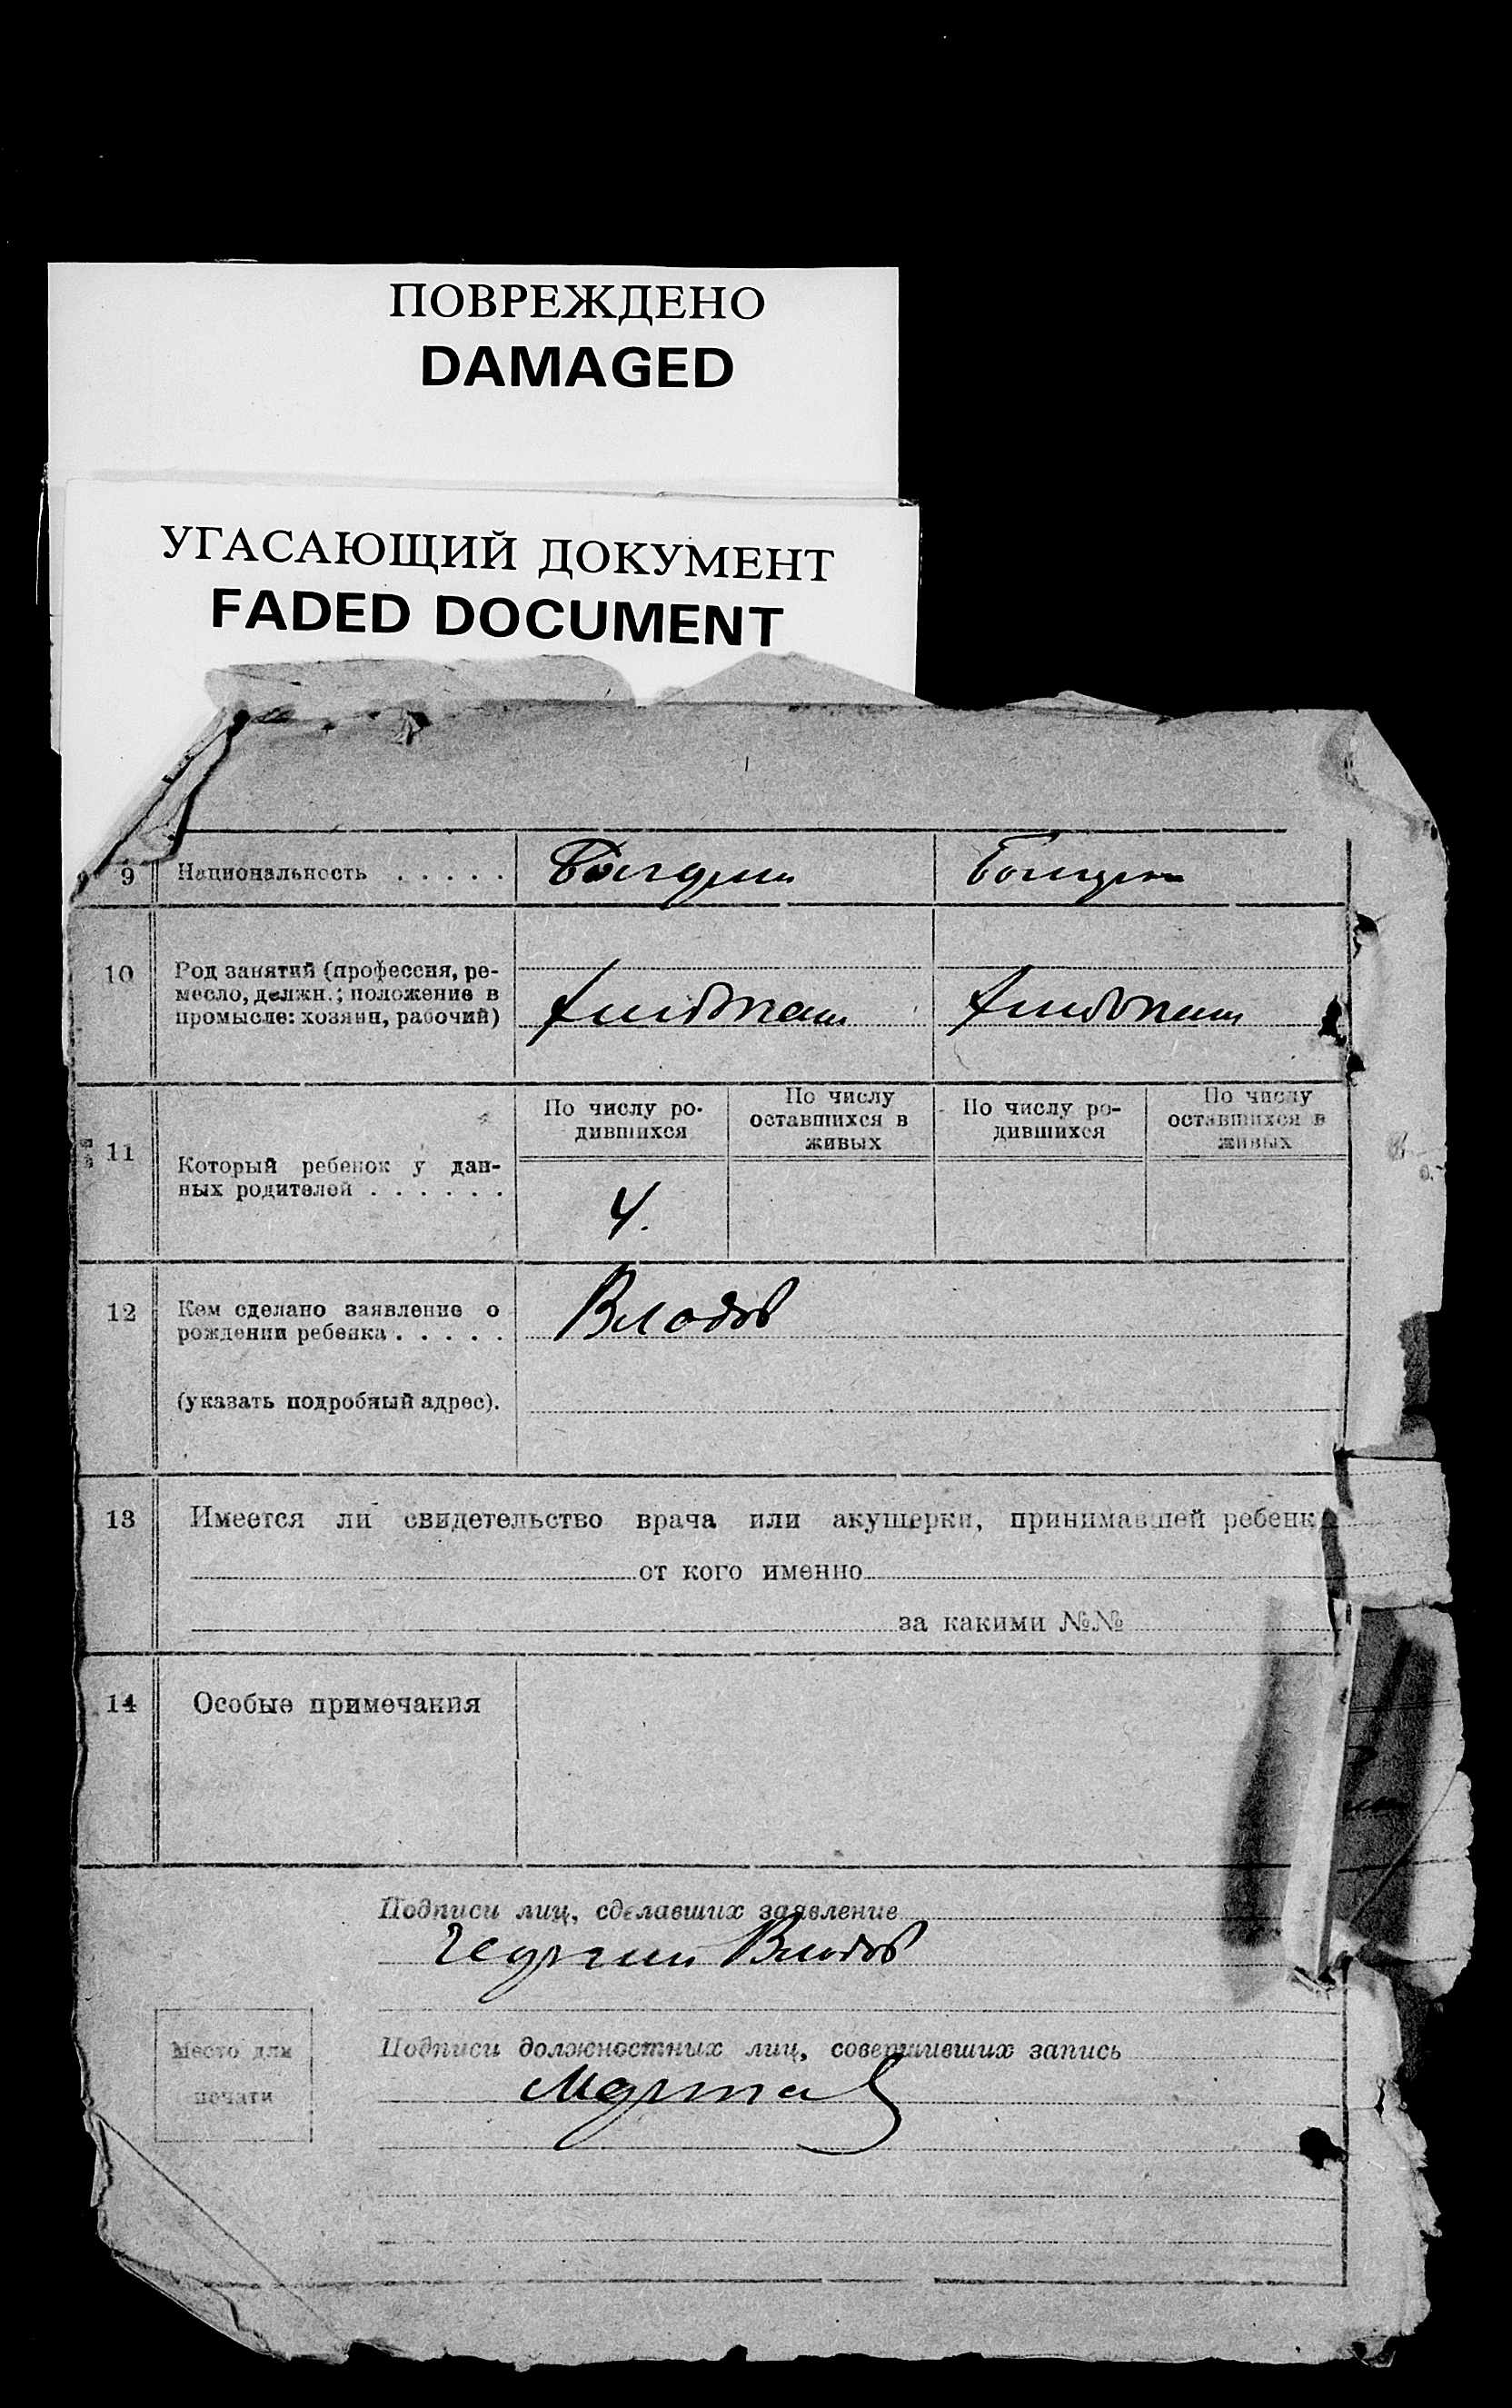 ПОВРЕЖДЕНО
DAMAGED
УГАСАЮЩИЙ ДОКУМЕНТ
FADED DOCUMENT
9 Национальность . . . . .
10 Род занятий (профессия, ре-
месло, должн.; положение в
промысле: хозяин, рабочий)
По числу ро- По числу По числу ро- По числу
дившихся оставшихся в дившихся оставшихся в
живых живых
11 Который ребенок у дан-
ных родителей . . . . . .
4.
12 Кем сделано заявление о
рождении ребенка . . . . . Влодов
(указать подробный адрес).
13 Имеется ли свидетельство врача или акушерки, принимавшей ребенк
от кого именно
за какими №№
14 Особые примечания
Подписи лиц, сделавших заявление
Георгий Влодов
Место для
печати
Подписи должностных лиц, совершивших запись